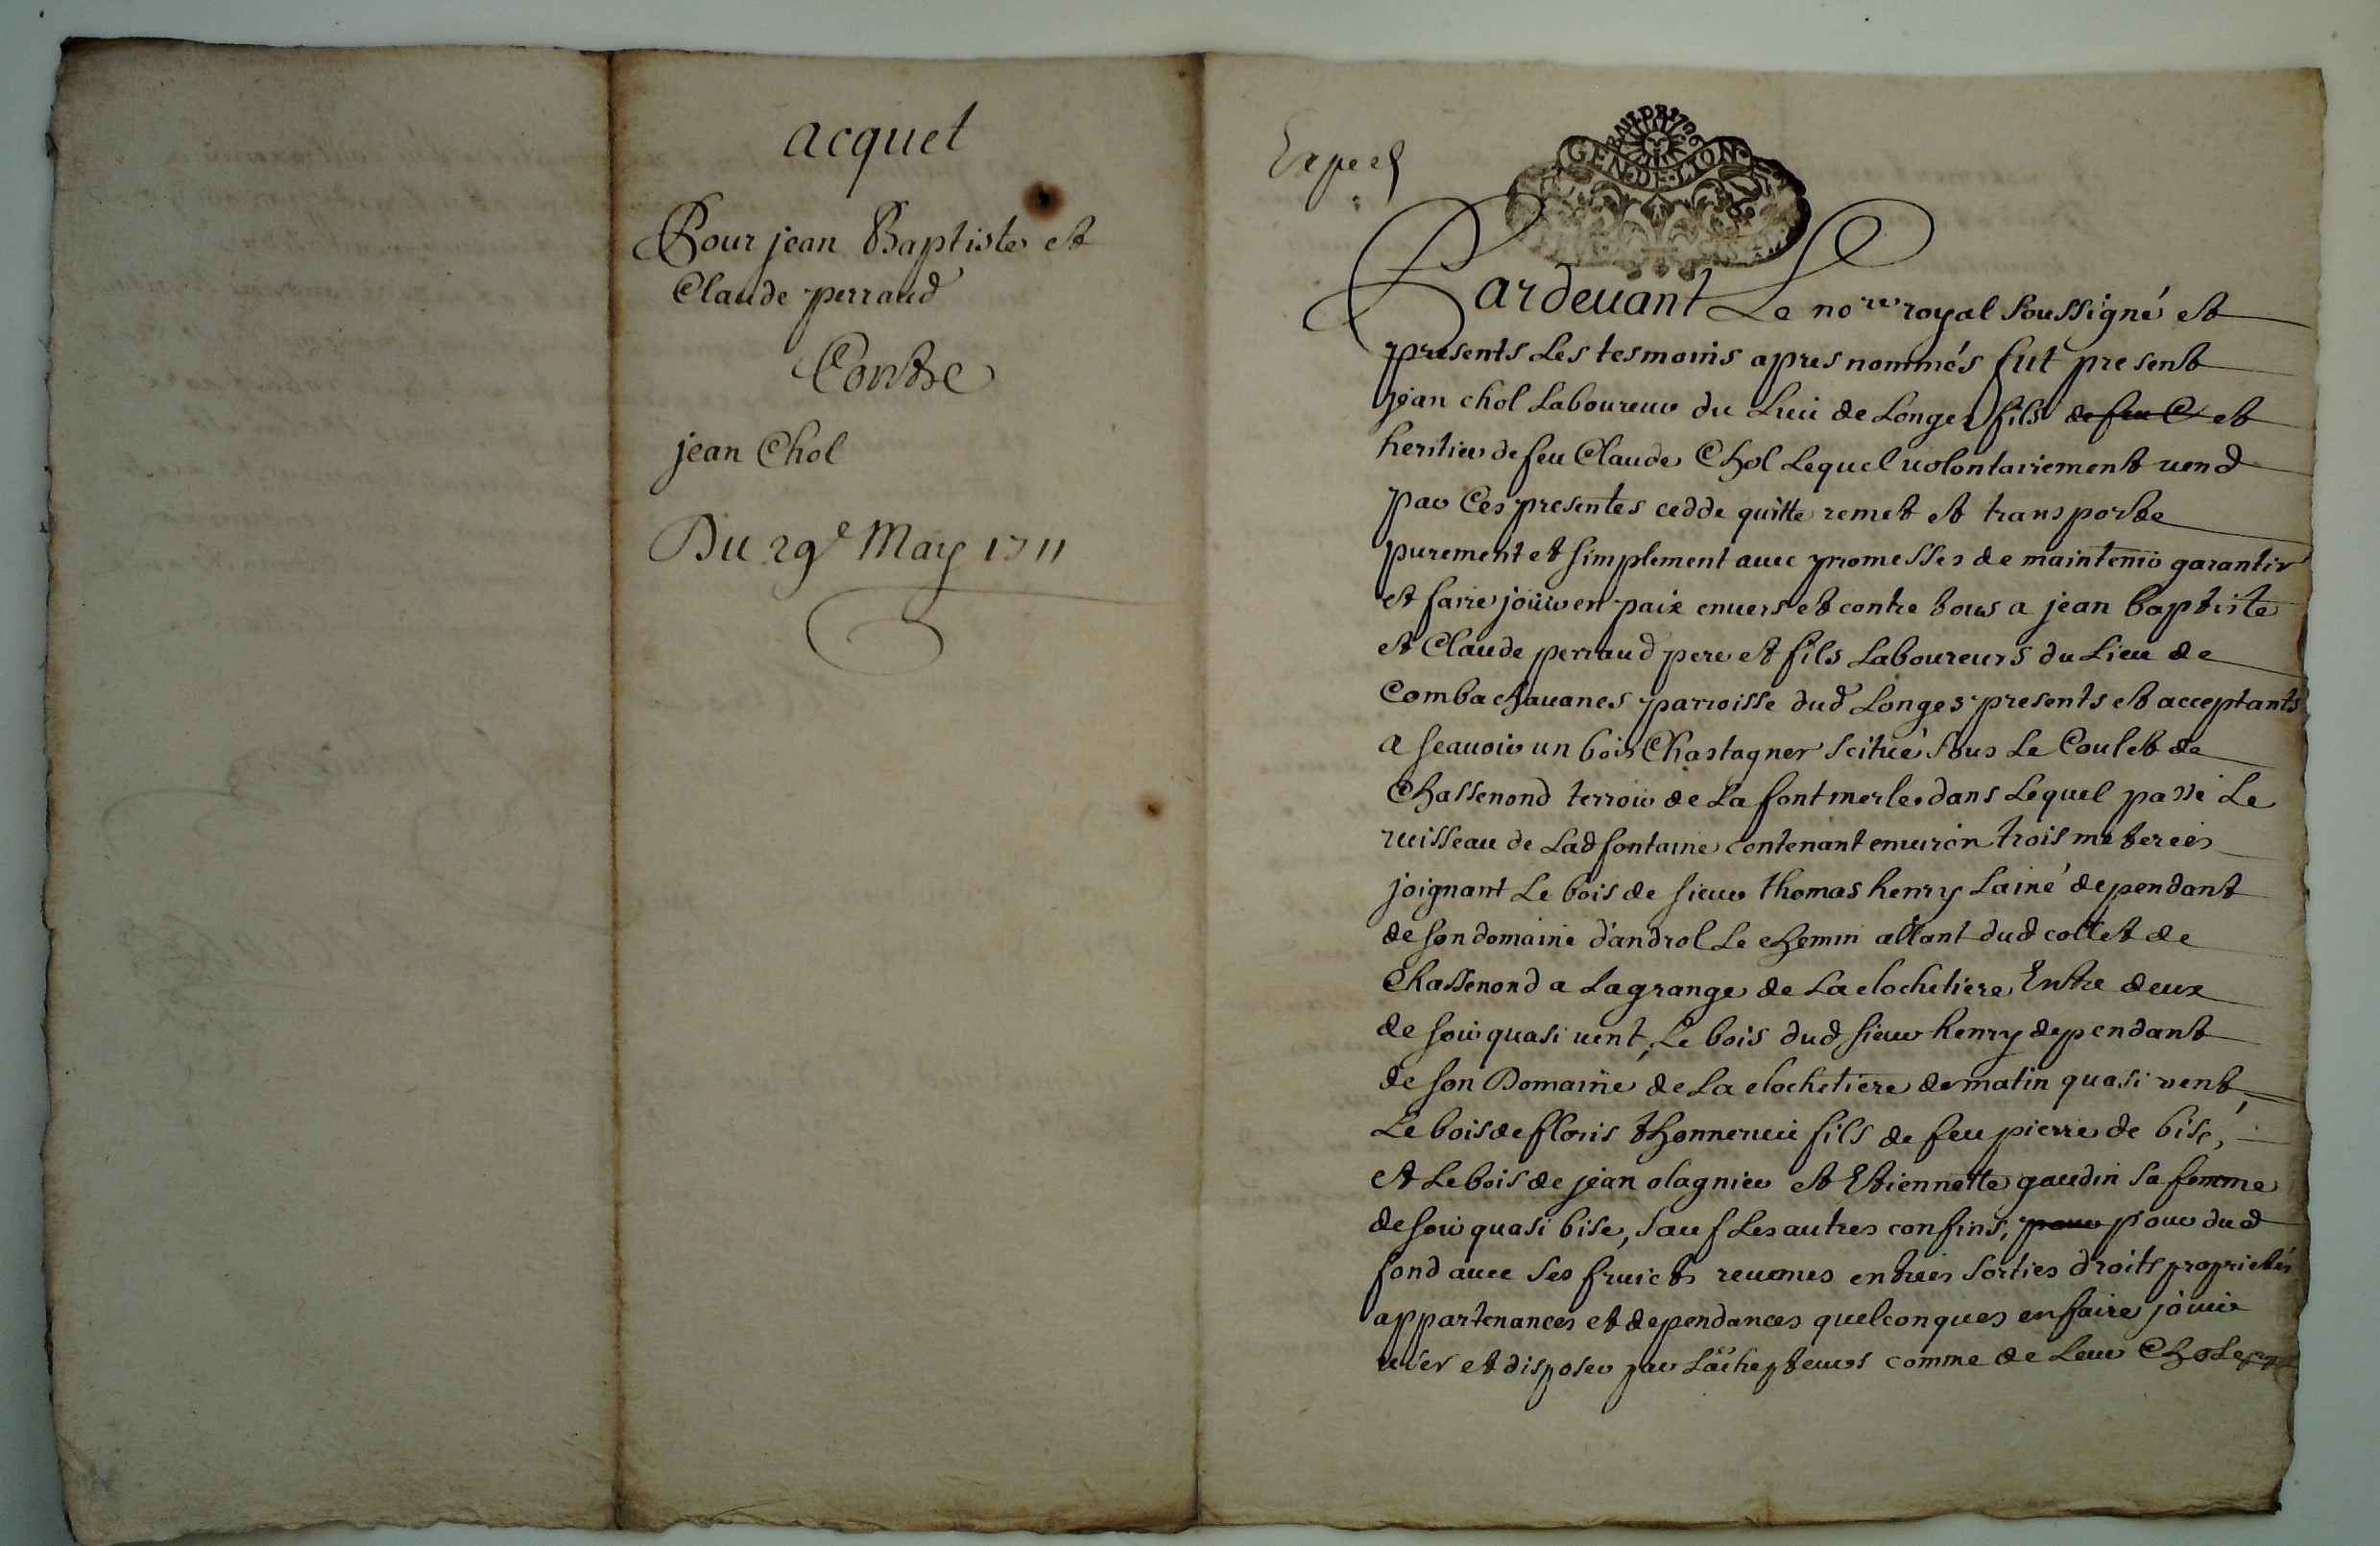 acquet
Pour jean Baptiste et
Claude perraud
Contre
jean Chol
Du 29e May 1711
Exped
GEN·DE·LION
Pardeuant Le nore royal soussigné et
presents Les tesmoins apres nommés fut present
jean chol Laboureur du Lieu de Longes fils de feu C et
heritier de feu Claude Chol Lequel uolontairement uend
par Ces presentes cedde quitte remet et transporte
purement et simplement auec promesses de maintenir garantir
et faire joüir en paix enuers et contre tous a jean baptiste
et Claude perraud pere et fils Laboureurs du Lieu de
Combachauanes parroisse dud Longes presents et acceptants
a scauoir un bois Chastagner scitué sous Le Coulet de
Chassenond terroir de La font merle dans Lequel passe Le
ruisseau de Lad fontaine contenant enuiron trois meterees
joignant Le bois de sieur thomas henry Lainé dependant
de son domaine d'androl Le chemin allant dud collet de
Chassenond a Lagrange de La clochetiere Entre deux
de soir quasi uent, Le bois dud sieur henry dependant
de son Domaine de La clochetiere de matin quasi vent,
Le bois de floris thonnerieu fils de feu pierre de bise,
et Le bois de jean olagnier et Etiennette gaudin sa femme
de soir quasi bise, sauf Les autres confins, pour pour dud
fond auec ses fruicts reuenues entrees sorties droits proprietés
appartenances et dependances quelconques en faire joüir
user et disposer par Lachepteurs comme de Leur Chose